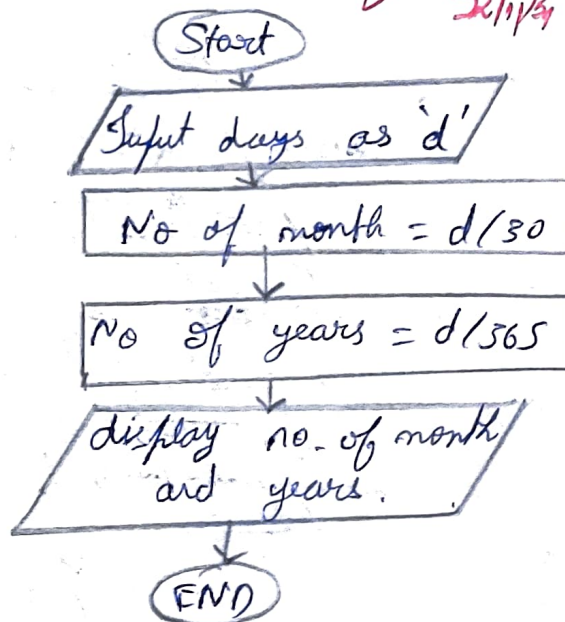 Start
Input days as 'd'
No of month = d/30
No of years = d/365
display no. of month
and years.
END